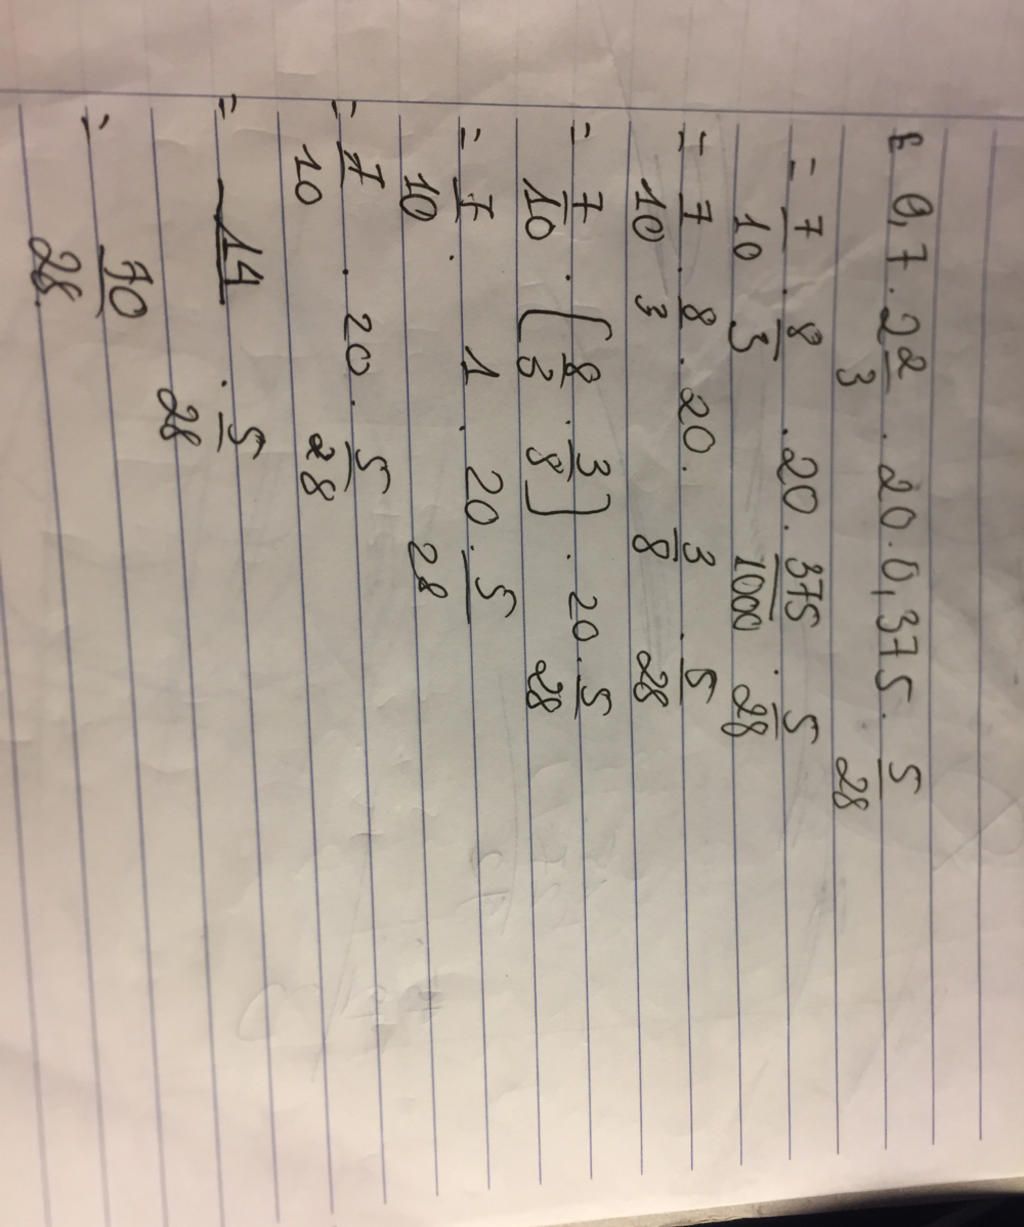 E 0,7 . 2 2/3 . 20 . 0,375 . 5/28
= 7/10 . 8/3 . 20 . 375/1000 . 5/28
= 7/10 . 8/3 . 20 . 3/8 . 5/28
= 7/10 . (8/3 . 3/8) . 20 . 5/28
= 7/10 . 1 . 20 . 5/28
= 7/10 . 20 . 5/28
= 14 . 5/28
= 70/28